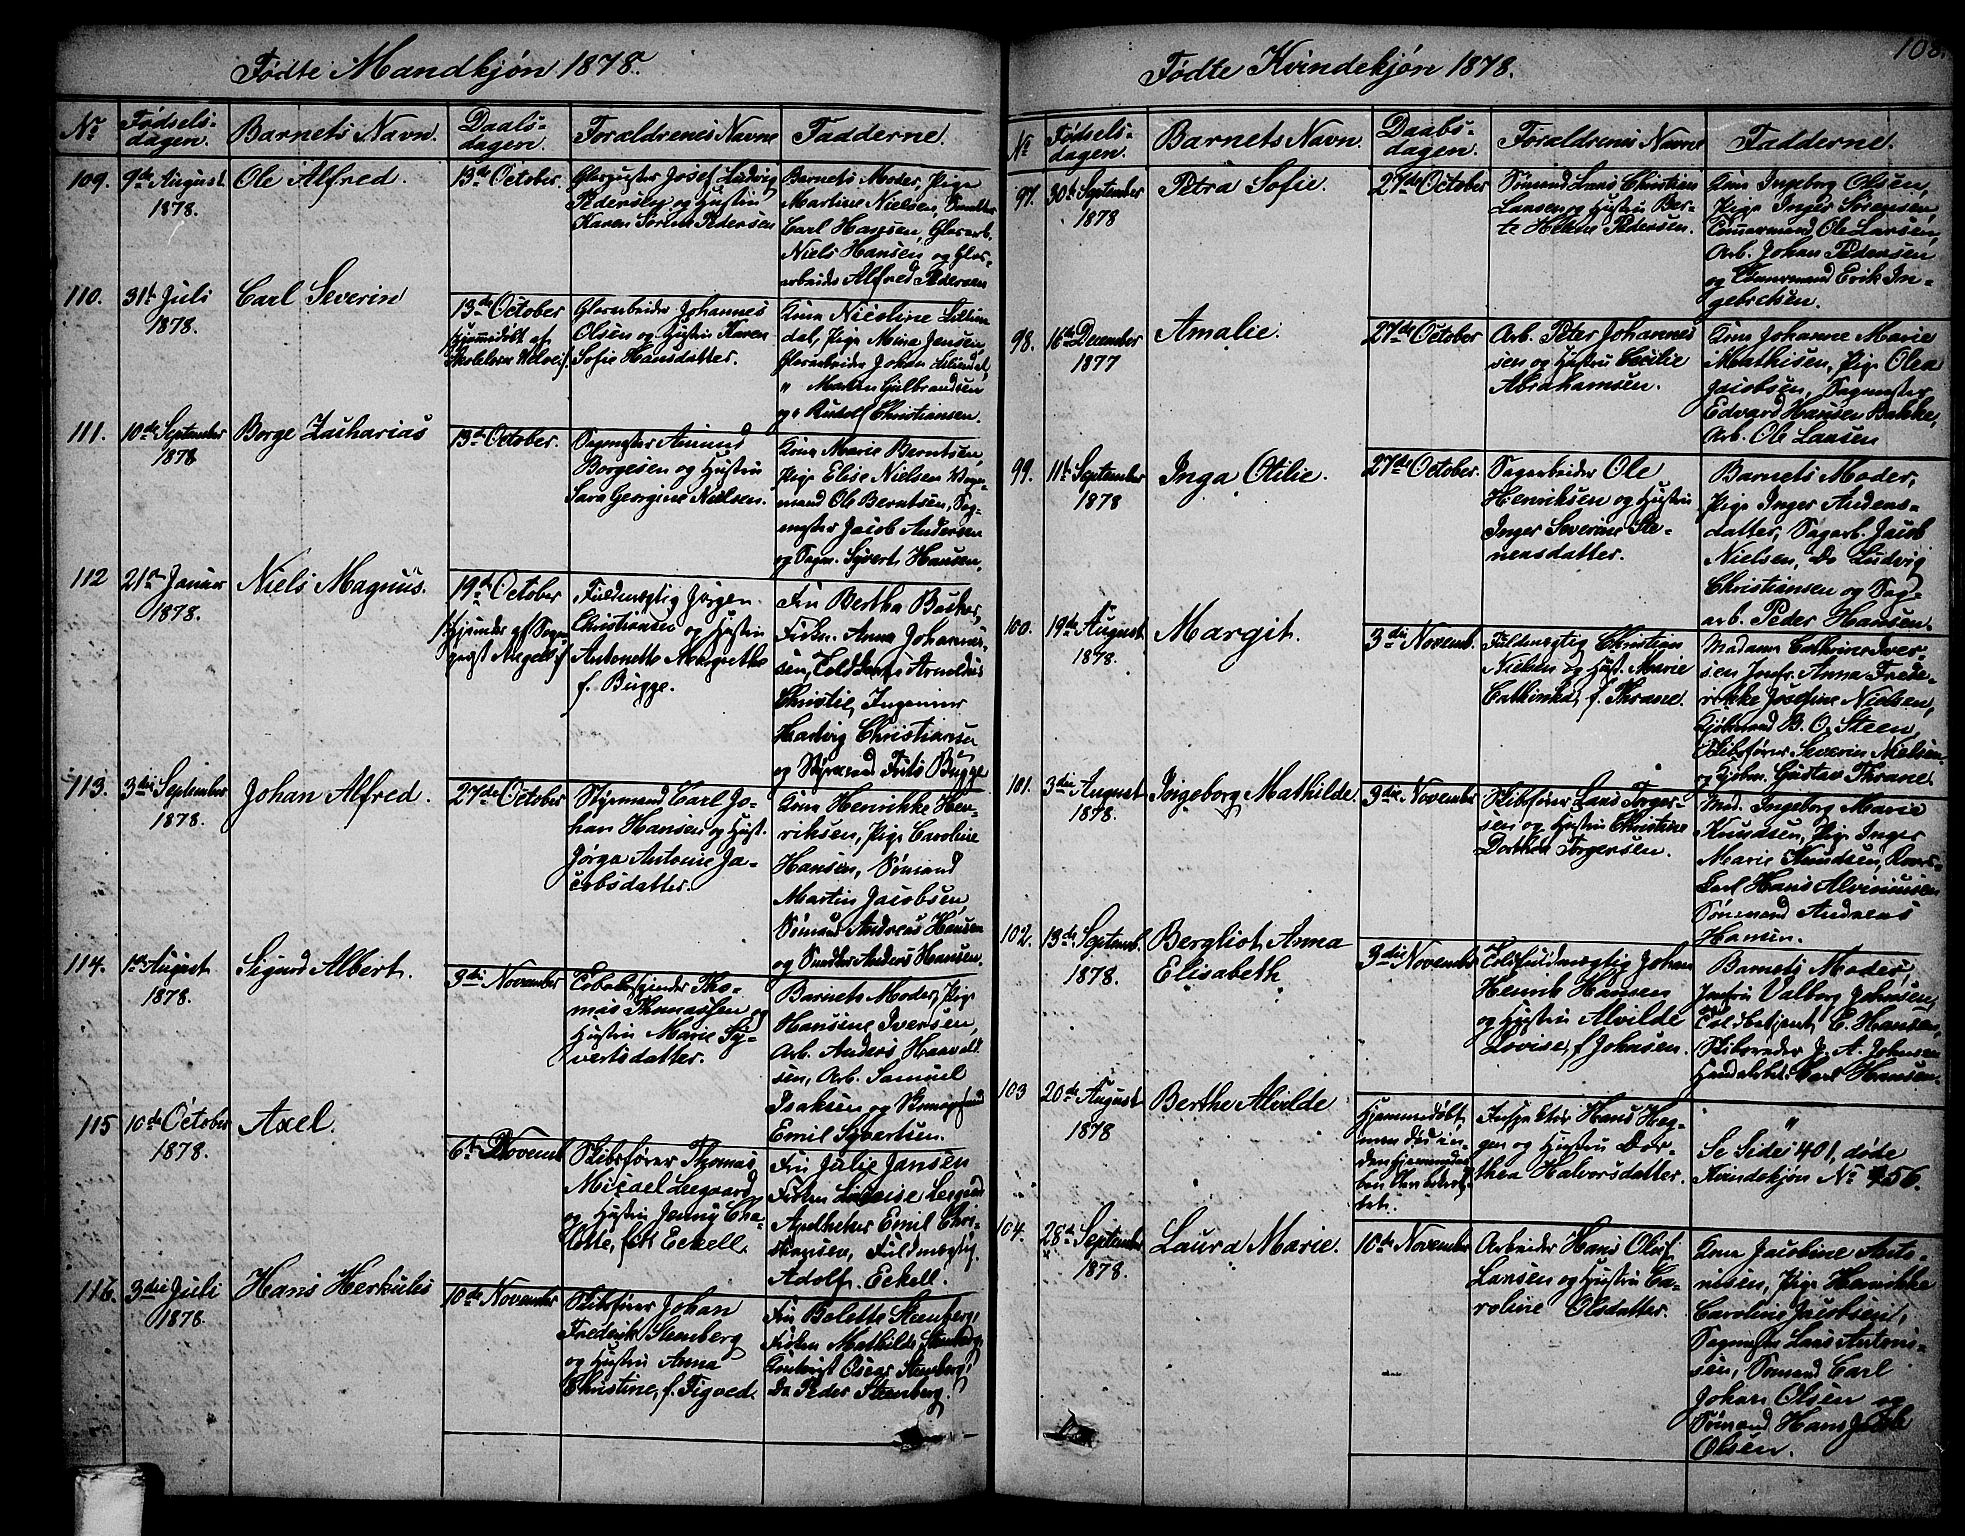 Fødte Mandkjøn 1878.
No
Fødsels-
dagen.
Barnets Navn.
Daabs-
dagen.
Forældrenes Navne
Fadderne.
109.
9de August
1878.
Ole Alfred.
13de October.
Josef Ludvig
Pedersen og Hustru
Karen Sørine Pedersen
Barnets Moder, Pige
Martine Nielsen,
Carl Hansen, Glasarb.
Niels Hansen og Glas-
arbeider Alfred Pedersen
110.
31te Juli
1878.
Carl Severin
13de October
Hjemmedøbt af
Glasarbeider Johannes
Olsen og Hustru Karen
Sofie Hansdatter.
Kona Nicoline Lillun-
dal, Pige Mina Jensen,
Glasarbeider Johan Lilundal,
" Martin Gulbrandsen
og " Rudolf Christiansen.
111.
10de September
1878
Borge Zacharias
13de October.
Sagmester Amund
Borgesen og Hustru
Sara Georgine Nielsen.
Kona Marie Berntsen,
Pige Elise Nielsen,
mand Ole Berntsen, Sag-
mester Jacob Andersen
og Sagm. Syvert Hansen.
112
21de Januar
1878.
Niels Magnus.
19de October
Fuldmægtig Jørgen
Christiansen og Hustru
Antonette Margrethe
f. Bugge.
Fru Bertha
Frøken Anna Johannes-
sen, Arnoldus
Christie, Ingeniør
Christiansen
og Styrmand Frits Bugge
113.
3die September
1878.
Johan Alfred.
27de October
Styrmand Carl Jo-
han Hansen og Hust.
Antonie Ja-
cobsdatter.
Kona Henrikke Hen-
riksen, Pige Caroline
Hansen, Sømand
Martin Jacobsen,
Sømand Andreas Hansen
og Anders Hansen.
114.
1ste August
1878.
Sigurd Albert.
3die November
Tobaksspinder Tho-
mas Thomassen og
Hustru Marie Sy-
vertsdatter.
Barnets Moder, Pige
Hansine Iversen,
Arb. Anders Haavald-
sen, Arb. Samuel
Isaksen og
Emil Syvertsen.
115
10de October
1878.
Axel.
6te Novemb
Skibsfører Thomas
Micael Leegaard
og Hustru Jenny Cha-
lotte, født Eckell.
Fru Julie Jansen
Frøken Lovise Leegaard
Apotheker Emil Chri-
stensen, Fuldmægtig
Adolf Eckell.
116.
3die Juli
1878.
Hans Herkules
10de November
Skibsfører Johan
Frederik Stenberg
og Hustru Anna
Christine, f. Tigved.
Fru Bolette Steenberg,
Frøken Mathilde Stenberg
Oscar Stenberg,
Do Peder Stenberg.
Fødte Kvindekjøn 1878.
108.
No
Fødsels-
dagen.
Barnets Navn.
Daabs-
dagen.
Forældrenes Navne
Fadderne.
97.
30te September
1878
Petra Sofie.
27de October
Sømand Lars Christian
Larsen og Hustru Ber-
te Helene Pedersen.
Kona Ingeborg Olsen,
Pige Inger Sørensen,
Tømermand Ole Larsen,
Arb. Johan Pedersen
og Tømermand Erik In-
gebretsen.
98.
16de December
1877
Amalie.
27de October
Arb. Peter Johannes
sen og Hustru Cecilie
Abrahamsen.
Kona Johanne Marie
Mathisen, Pige Olea
Jacobsen, Sagmester
Edvard Hansen Bakke,
Arb. Ole Larsen
99.
11te September
1878
Inga Otilie.
27de October.
Sagarbeider Ole
Henriksen og Hustru
Inger Severine Ste-
nensdatter.
Barnets Moder,
Pige Inger Anders-
datter, Sagarb. Jacob
Nielsen, Do Ludvig
Christiansen og Sag-
arb. Peder Hansen.
100.
19de August
1878.
Margit.
3die Novemb.
Fuldmægtig Christian
Nielsen og Hust. Marie
Cathinka, f. Thrane.
Madame Cathrine Iver-
sen Jomfr. Anna Frede-
rikke Josefine Nielsen,
Kjøbmand B. O. Steen,
Skibsfører Severin Nielsen
og Kjøbm. Gustav Thrane
101.
3die August
1878.
Ingeborg Mathilde.
3die November
Skibsfører Lars Torger-
sen og Hustru Christine
Dorthea Torgersen.
Mad. Ingeborg Marie
Knudsen, Pige Inger
Marie Knudsen,
Hans Alviniusen
Sømand Andreas
Hansen.
102.
13de Septemb.
1878.
Bergliot Anna
Elisabeth
3die November
Toldfuldmægtig Johan
Henrik Hansen
og Hustru Alvilde
Lovise, f. Johnsen.
Barnets Moder,
Jomfru Valborg Johnsen,
Toldbetjent C. Hansen,
Skibsreder J. A. Johnsen
Carl Hansen.
103
20de August
1878
Berthe Alvilde
Hjemmedøbt,
men død in-
den Hjemmedaa-
ben blev bekræf-
tet.
Hans Hag-
gen og Hustru Dor-
thea Halvorsdatter.
"
Se Side 401, døde
Kvindekjøn No 56.
104.
28de September
1878.
Laura Marie.
10de November
Arbeider Hans Oluf
Larsen og Hustru Ca-
roline Olsdatter.
Kona Jacobine Anto-
nisen, Pige Henrikke
Caroline Jacobsen,
Sagmester Lars Antoni-
sen, Sømand Carl
Johan Olsen og
Sømand Hans Jacob
Olsen.